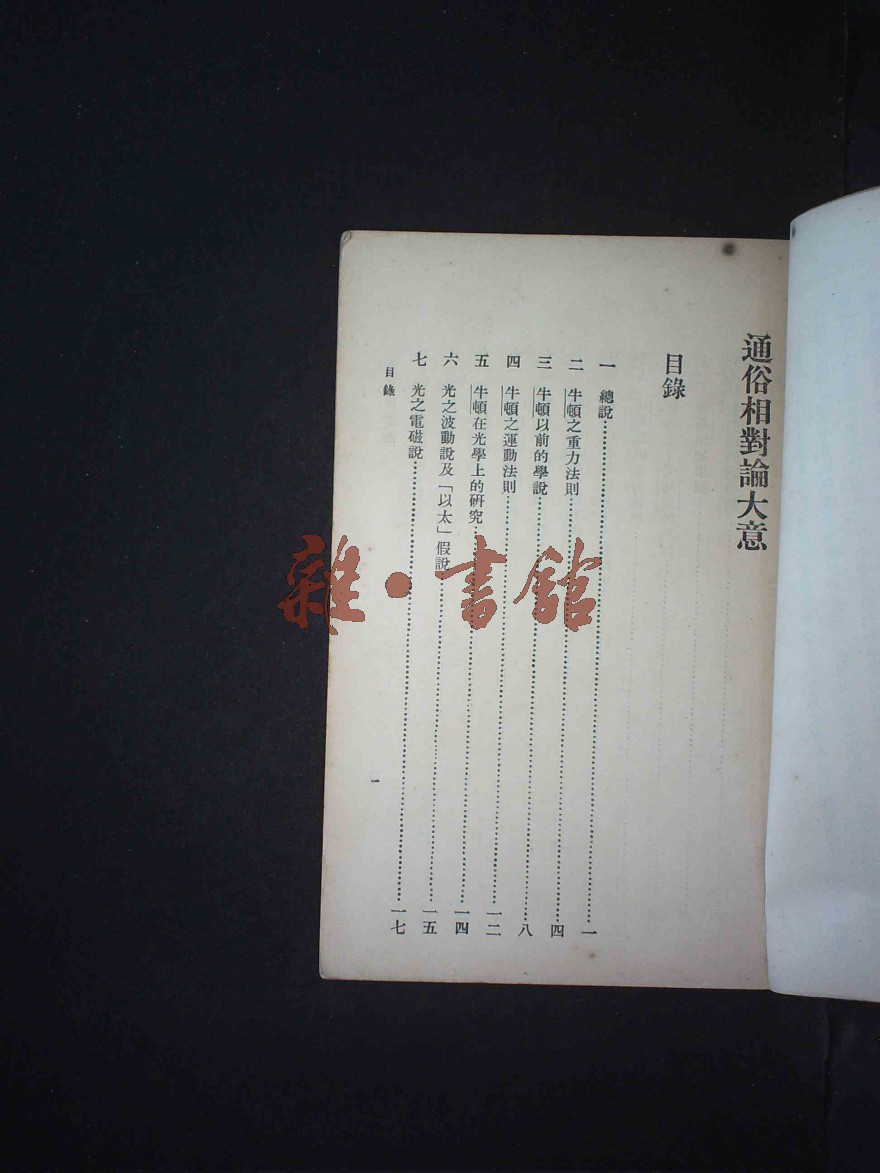 通俗相對論大意
目錄
一 總說……一
二 牛頓之重力法則……四
三 牛頓以前的學說……八
四 牛頓之運動法則……一二
五 牛頓在光學上的研究……一四
六 光之波動說及「以太」假說……一五
七 光之電磁說……一七
目錄
一
雜·書館